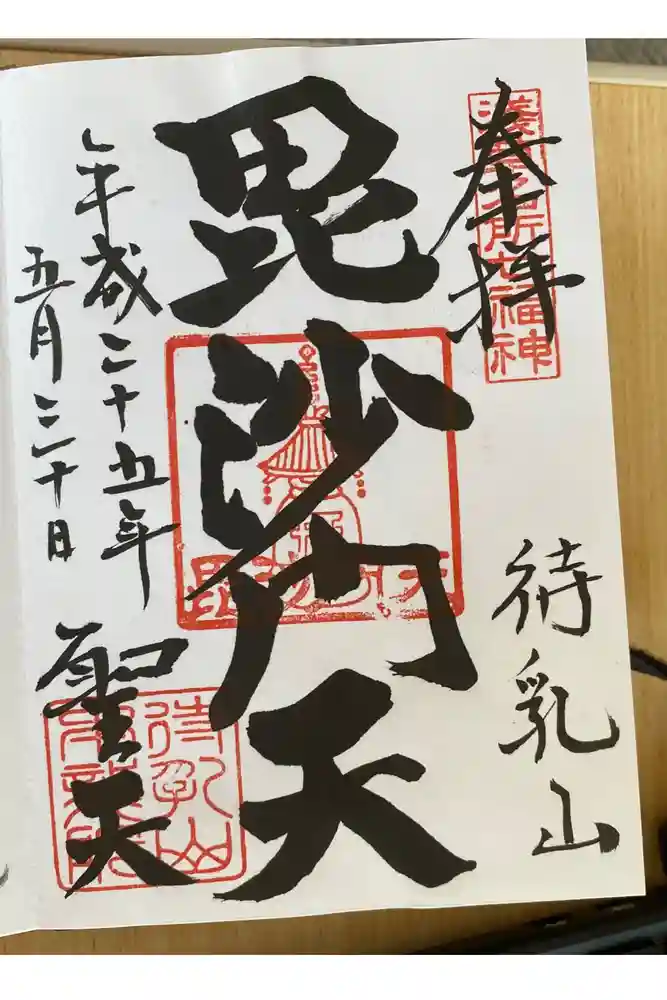 奉拝
浅草名所七福神
待乳山
毘沙門天
年歳二十五年
五月三十日
聖天
待乳山
本龍院